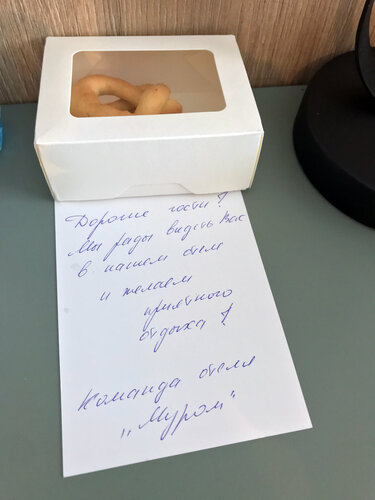 Дорогие гости!
Мы рады видеть Вас
в нашем отеле
и желаем
приятного
отдыха!
Команда отеля
„Муром“